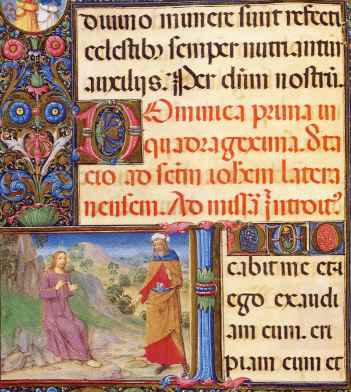 diuino munere sunt refecti
celestibꝫ semper nutriantur
auxilijs. Per dñm nostrũ.
DOminica prima in
quadragexima. Sta
cio ad scm̃ iohem̃ latera
nensem. Ad missã Introitꝰ
INVO
cabit me et
ego exaudi
am eum. eri
piam eum et